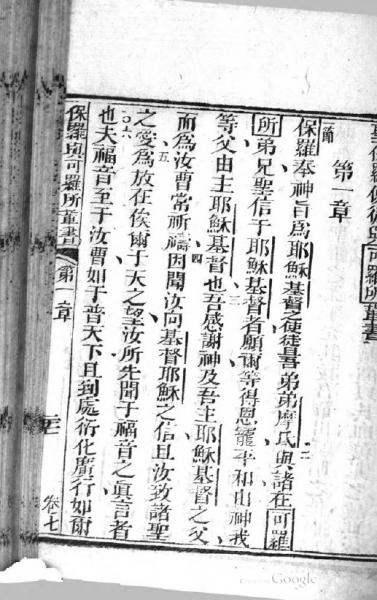 聖保羅使徒與可羅所輩書
第一章
一節
保羅奉神旨爲耶穌基督之使徒曁弟弟摩氐與諸在可羅
二
所弟兄聖信于耶穌基督者願爾等得恩寵平和由神我
三
等父由主耶穌基督也吾感謝神及吾主耶穌基督之父
四
而爲汝曹常祈禱因聞汝向基督耶穌之信且汝致諸聖
五
之愛爲放在俟爾于天之望汝所先聞于福音之眞言者
六
也夫福音至于汝曹如于普天下且到處衍化廣行如爾
保羅與可羅所輩書 第一章 卷七
Google